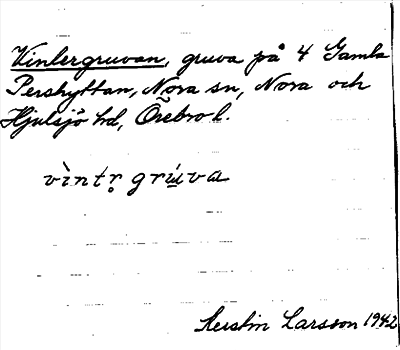 Vintergruvan, gruva på 4 Gamla
Pershyttan, Nora sn, Nora och
Hjulsjö hd, Örebro l.
vìntr̥ grú̲va
Kerstin Larsson 1942